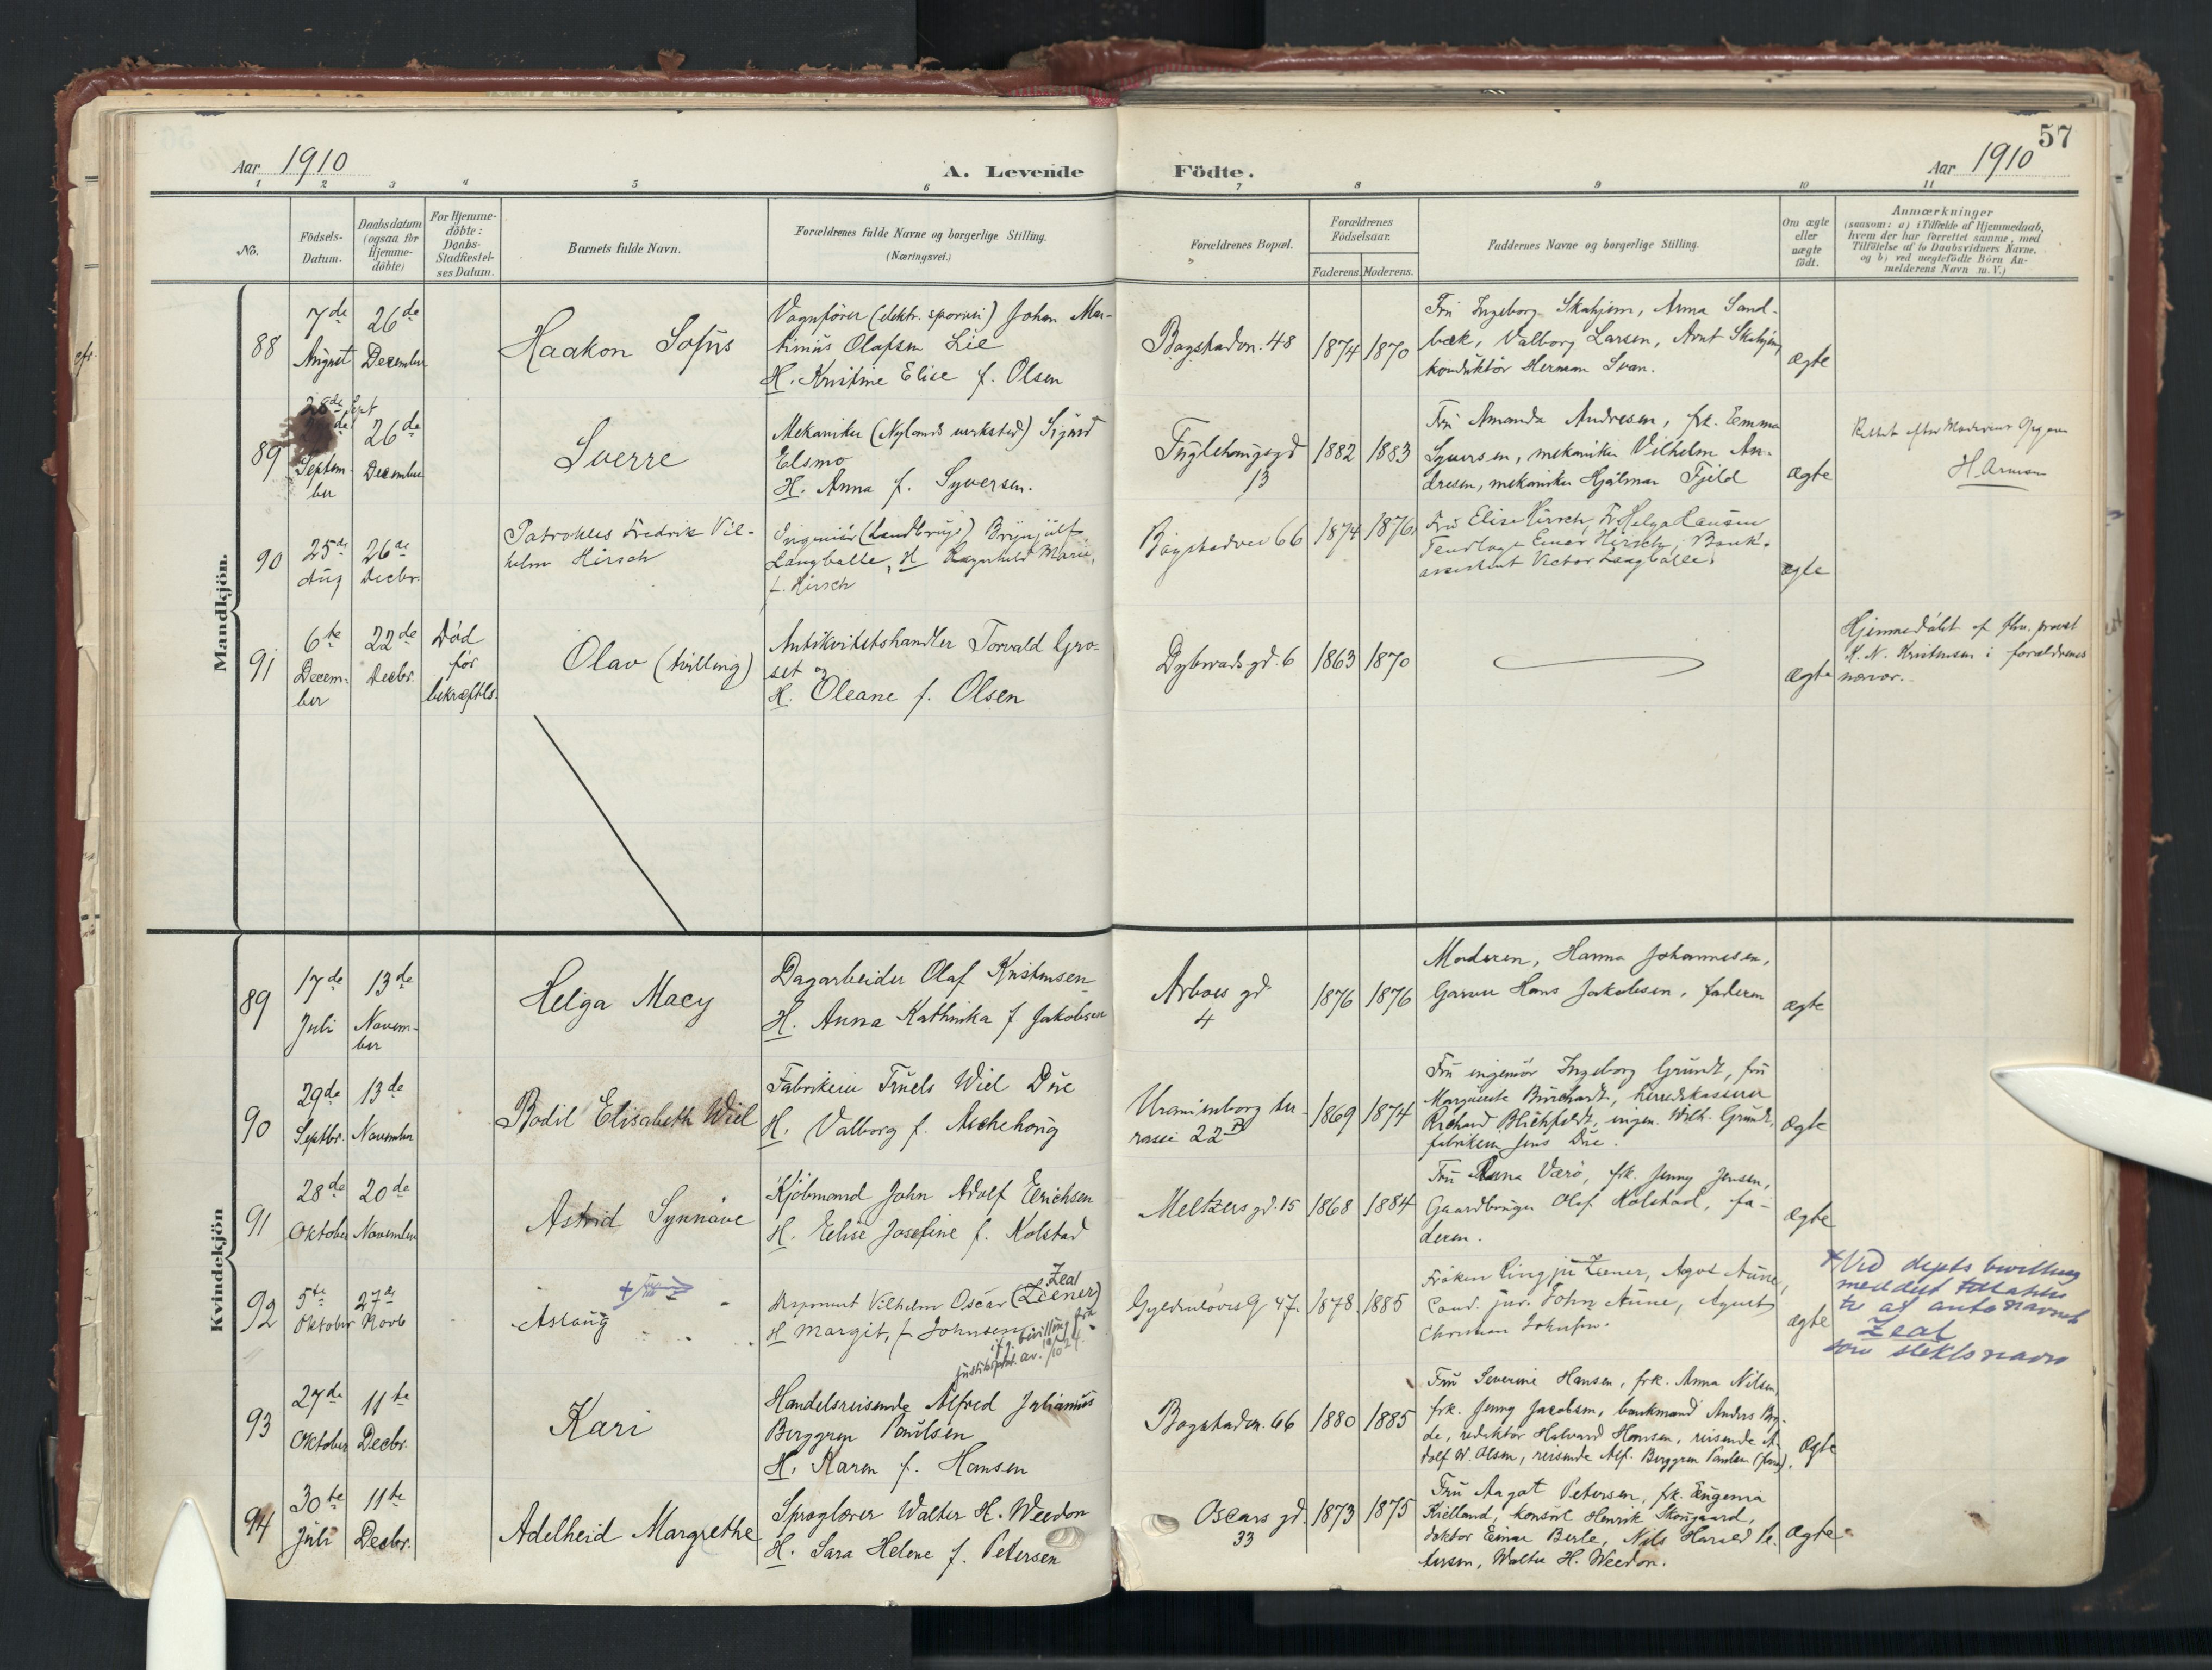 57
Aar 1910
A. Levende
Födte.
Aar 1910
1 2 3 4 5 6 7 8 9 10 11
No.
Födsels-
Datum.
Daabsdatum
(ogsaa for
Hjemme-
döbte)
For Hjemme-
döbte:
Daabs-
Stadfæstel-
ses Datum.
Barnets fulde Navn.
Forældrenes fulde Navne og borgerlige Stilling.
(Næringsvei.)
Forældrenes Bopæl.
Forældrenes
Födselsaar.
Faderens. Moderens.
Faddernes Navne og borgerlige Stilling.
Om ægte
eller
uægte
födt.
Anmærkninger
(saasom: a) i Tilfælde af Hjemmedaab,
hvem der har forrettet samme, med
Tilföielse af to Daabsvidners Navne,
og b) ved uægtefödte Börn An-
melderens Navn m. V.)
Mandkjön.
88
7de
August
26de
December
Haakon Sofus
Vognfører (elektr. sporvei) Johan Mar-
tinius Olafsen Lie
H. Kristine Elise f. Olsen
Bogstadvn. 48
1874
1870
Fru Ingeborg Skahjem, Anna Sand-
bæk, Valborg Larsen, Arnt Skahjem,
konduktör Herman Svan.
ægte
89
28de Sept
Septem-
ber
26de
December
Sverre
Mekaniker (Nylands verksted) Sigurd
Elsmo
H. Anna f. Syversen.
Fuglehaugsgd
13
1882
1883
Fru Amanda Andresen, frk. Emma
Syversen, mekaniker Vilhelm An-
dresen, mekaniker Hjalmar Fjeld
ægte
Rettet efter Moderens Opgave
90
25de
Aug
26de
Decbr.
Patroklus Fredrik Vil-
helm Hirsch
Ingeniör (Landbrugs) Brynjulf
Langballe, H Ragnhild Marie,
f. Hirsch
Bogstadvei 66
1874
1876
Fru Elise Hirsch, Fr Helga Hansen
Tandlæge Einar Hirsch, Bank-
assistent Victor Langballe.
ægte
91
6te
Decem-
ber
22de
Decbr.
Död
för
bekræftels.
Olav (tvilling)
Antikvitetshandler Torvald Gro-
set og
H. Oleane f. Olsen
Dybwads gd. 6
1863
1870
ægte
Hjemmedöbt af fhv. provst
K. N. Kristensen i forældrenes
nærvær.
Kvindekjön
89
17de
Juli
13de
Novem-
ber
Helga Macy
Dagarbeider Olaf Kristensen
H. Anna Kathinka f. Jakobsen
Arboes gd
4
1876
1876
Moderen, Hanna Johannesen,
Garver Hans Jakobsen, faderen
ægte
90
29de
Septbr.
13de
November
Bodil Elisabeth Wiel
Fabrikeier Truels Wiel Due
H. Valborg f. Aschehoug
Uranienborg ter-
rasse 22B
1869
1874
Fru ingeniør Ingeborg Grundt, fru
Margrethe Burchardt, herredskasserer
Richard Blichfeldt, ingen. Wilh. Grundt,
fabrikeier Jens Due.
ægte
91
28de
Oktober
20de
November
Astrid Synnöve
Kjöbmand John Adolf Erichsen
H. Elise Josefine f. Kolstad
Meltzers gd. 15
1868
1884
Fru Anna Værö, frk. Jenny Jensen,
Gaardbruger Olaf Kolstad, fa-
deren.
ægte
92
5te
Oktober
27de
Novb
Aslaug
Zeal
Vilhelm Oscar (Zeener)
H Margit, f. Johnsen
ifg. bevilling fra
justitsdptet. av. 19/10 24.
Gyldenløvesg 47.
1878
1885
Fröken Zeener, Agot Aune,
Cand. jur. John Aune, August
Christian Johnsen.
ægte
Ved depts bevilling
meddelt tilladelse
til at anta navnet
Zeal
som slektsnavn
93
27de
Oktober
11te
Decbr.
Kari
Handelsreisende Alfred Julianus
Berggren Paulsen
H. Karen f. Hansen
Bogstadvn. 66
1880
1885
Fru Severine Hansen, frk. Anna Nilsen,
frk. Jenny Jacobsen, bankmand Anders By-
de, redaktör Halvard Hansen, reisende A-
dolf W. Olsen, reisende Alf. Berggren Paulsen (faren).
ægte
94
30te
Juli
11te
Decbr.
Adelheid Margrethe
Sproglærer Walter H. Weedon
H. Sara Helene f. Petersen
Oscars gd.
33
1873
1875
Fru Aagot Petersen, frk. Eugenia
Kielland, konsul Henrik Skougaard,
doktor Einar Berle, Nils Harald Pe-
tersen, Walter H. Weedon.
ægte